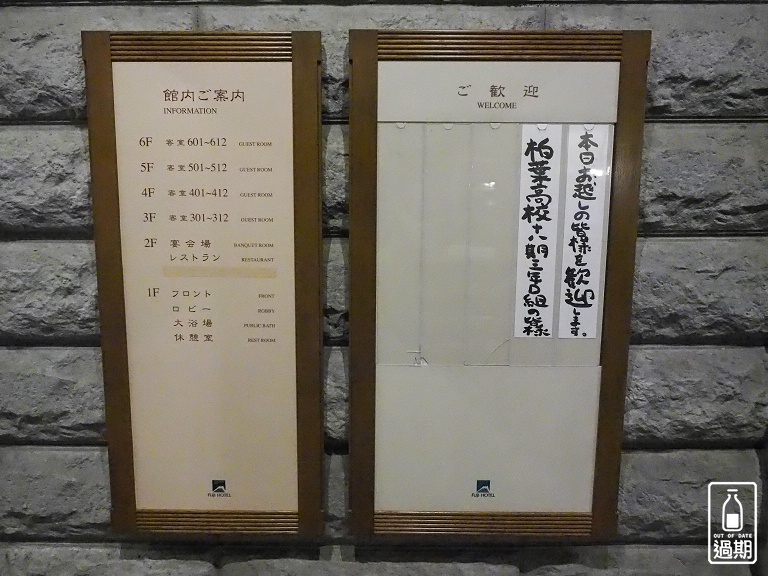 館内ご案内
INFORMATION
6F 客室 601~612 GUEST ROOM
5F 客室 501~512 GUEST ROOM
4F 客室 401~412 GUEST ROOM
3F 客室 301~312 GUEST ROOM
2F 宴会場 BANQUET ROOM
レストラン RESTAURANT
1F フロント FRONT
ロビー ROBBY
大浴場 PUBLIC BATH
休憩室 REST ROOM
FUJI HOTEL
ご歓迎
WELCOME
本日お越しの皆様を歓迎します。
柏葉高校十八期三年D組の皆様
FUJI HOTEL
OUT OF DATE
過期